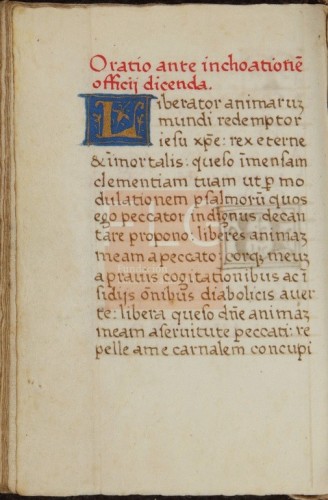 Oratio ante inchoationē
officij dicenda.
Liberator animaruʒ
mundi redemptor
iesu xp̄e: rex eterne
& īmortalis: queso īmensam
clementiam tuam ut p̱ mo
dulationem psalmorū quos
ego peccator indignus decan
tare propono: liberes animaʒ
meam a peccato: corqʒ meuʒ
a pravis cogitationibus ac ī
sidijs oībus diabolicis auer
te: libera queso dn̄e animaʒ
meam a seruitute peccati: re
pelle a me carnalem concupi